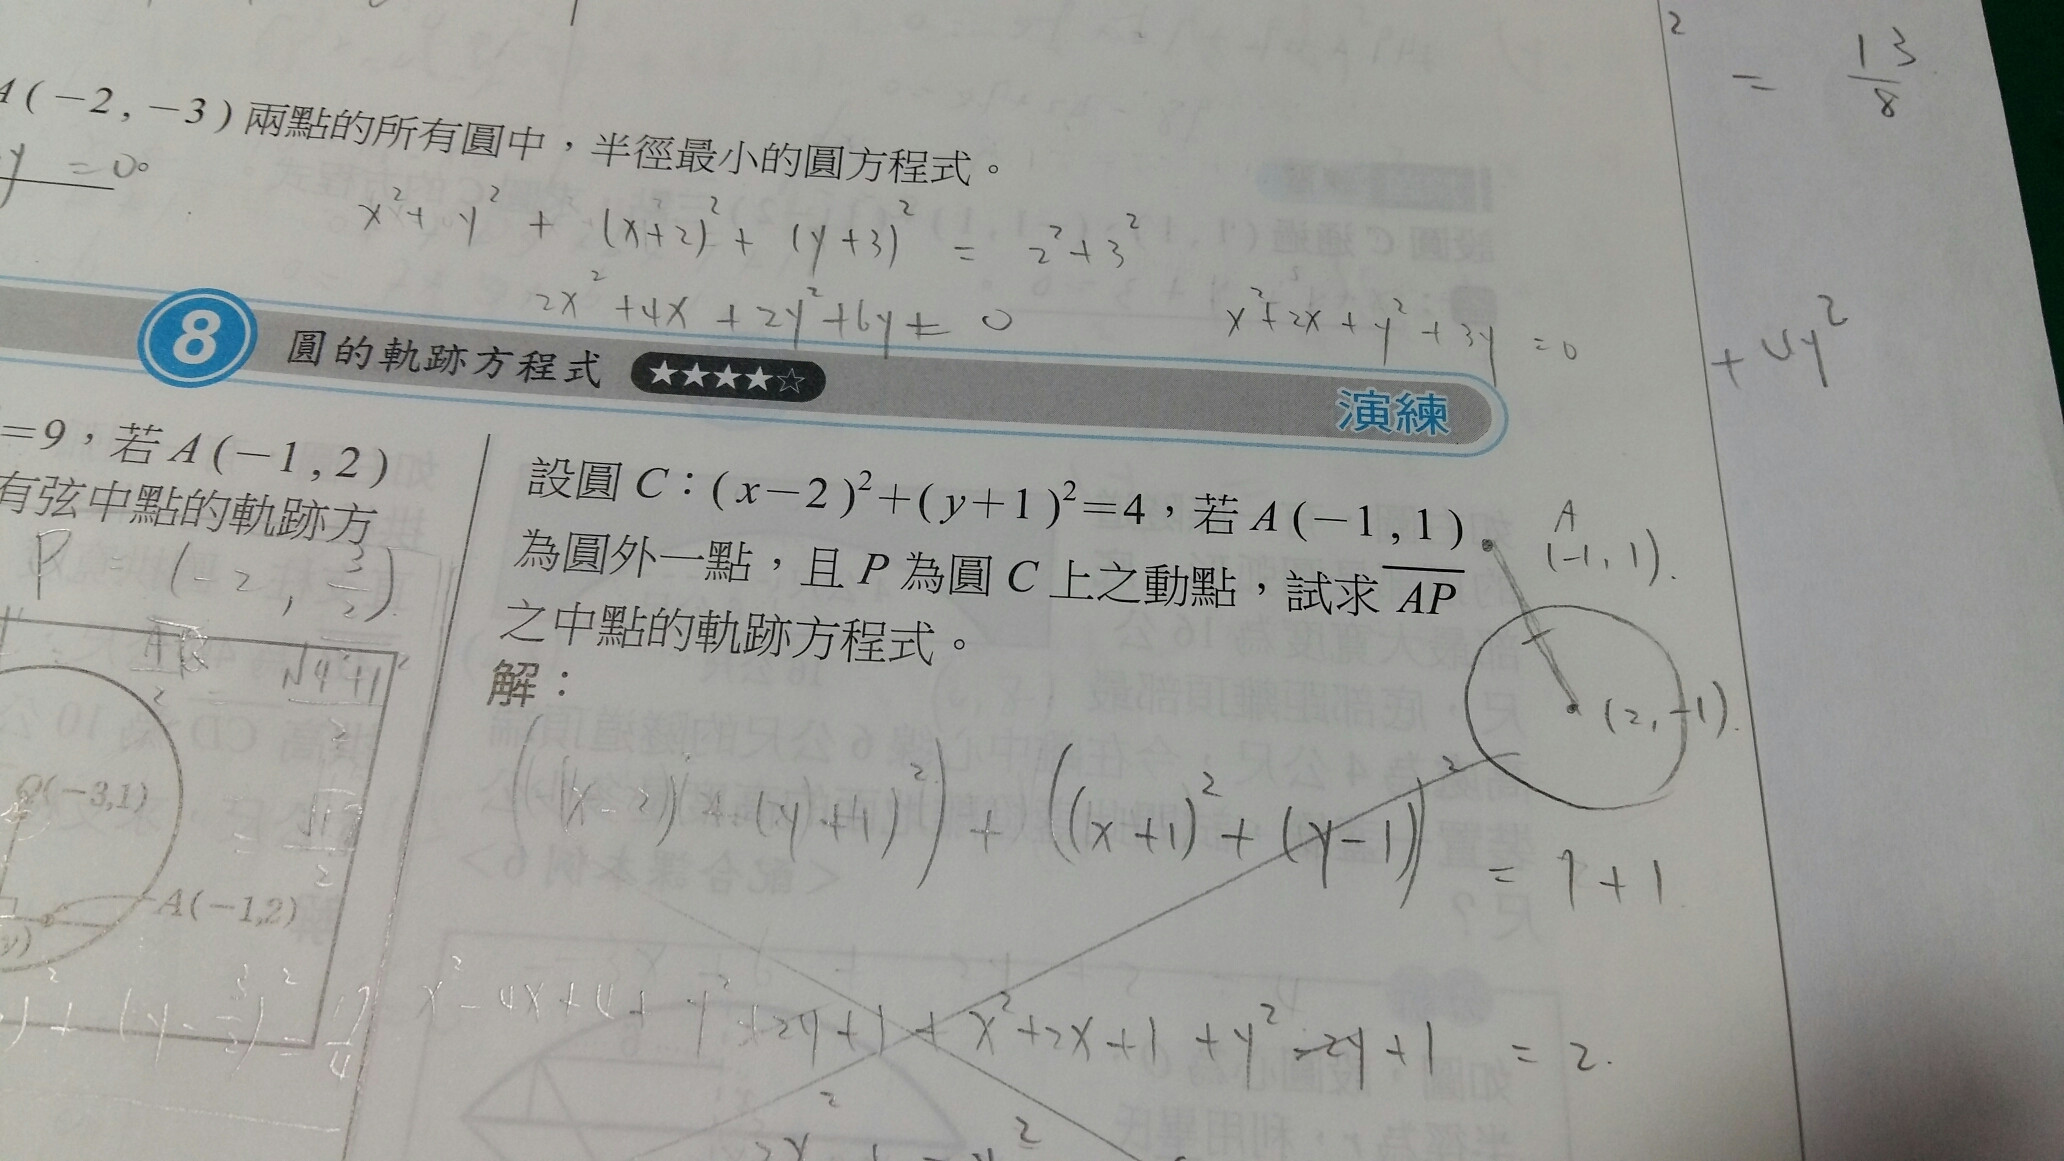 A(-2,-3)兩點的所有圓中,半徑最小的圓方程式。
y = 0。
x²+y² + (x+2)² + (y+3)² = 2²+3²
2x²+4x+2y²+6y+= 0
x²+2x+y²+3y =0
2
= 13/8
+ 4y²
8 圓的軌跡方程式 ★★★★☆
演練
=9,若A(-1,2)
有弦中點的軌跡方
P = (-2, 3/2)
Q(-3,1)
A(-1,2)
設圓C:(x-2)²+(y+1)²=4,若A(-1,1)
為圓外一點,且P為圓C上之動點,試求AP
之中點的軌跡方程式。
解:
A
(-1,1).
(2,-1).
((x-2)²+(y+1)²) + ((x+1)²+(y-1))² = 1+1
x²-4x+4+y²+2y+1+x²+2x+1+y²-2y+1 = 2.